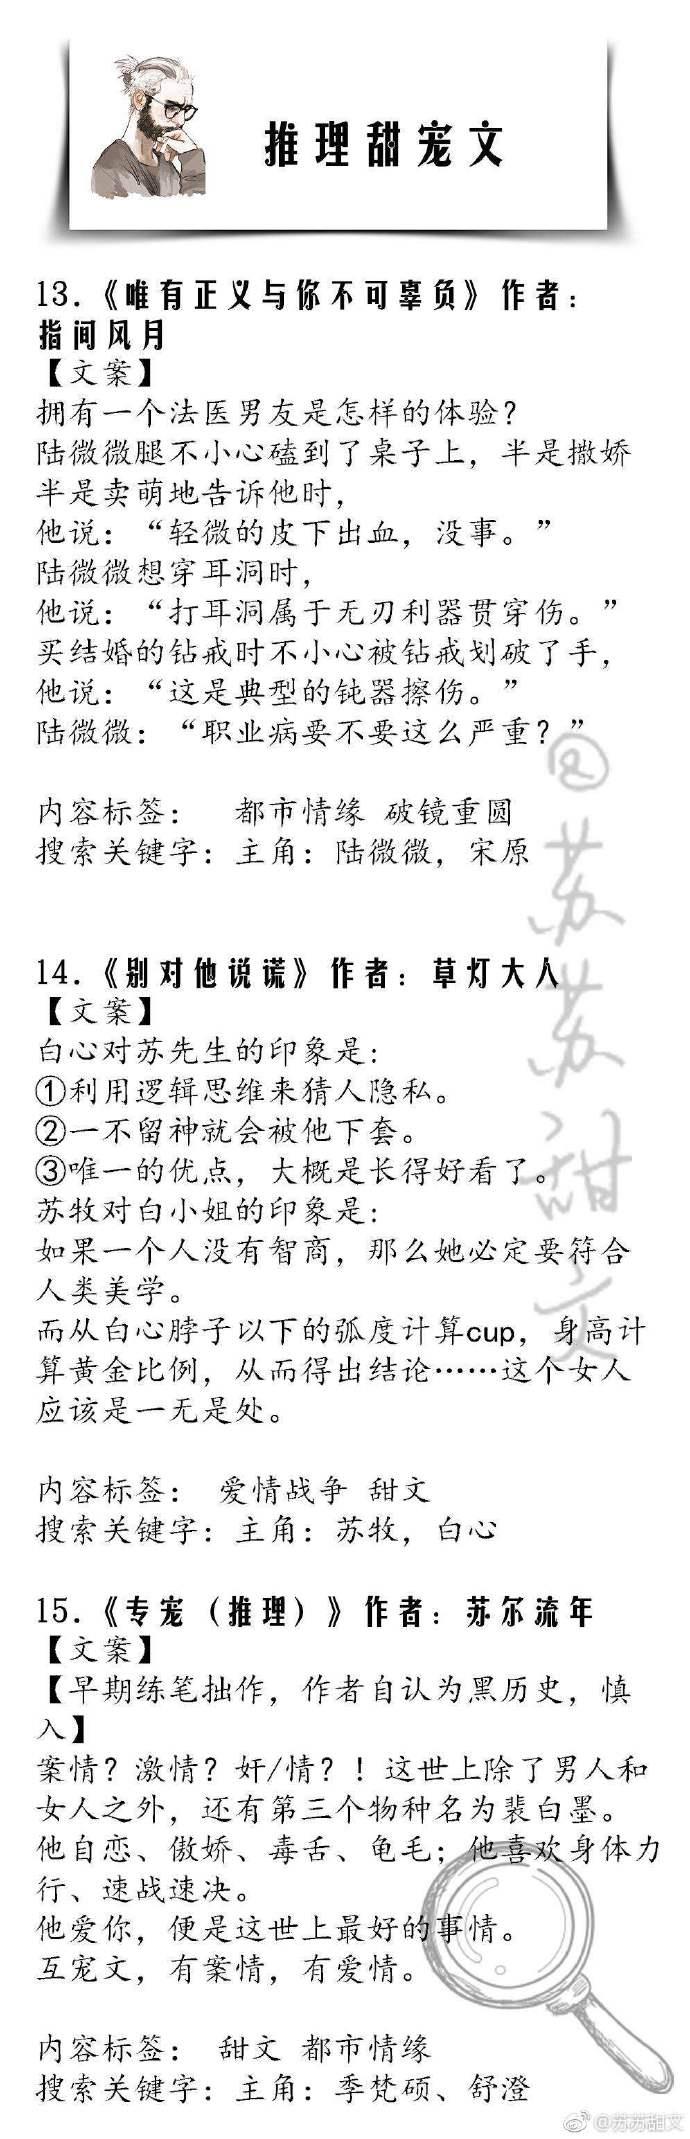 推理甜宠文
13.《唯有正义与你不可辜负》作者：
指间风月
【文案】
拥有一个法医男友是怎样的体验？
陆微微腿不小心磕到了桌子上，半是撒娇
半是卖萌地告诉他时，
他说：“轻微的皮下出血，没事。”
陆微微想穿耳洞时，
他说：“打耳洞属于无刃利器贯穿伤。”
买结婚的钻戒时不小心被钻戒划破了手，
他说：“这是典型的钝器擦伤。”
陆微微：“职业病要不要这么严重？”
内容标签： 都市情缘 破镜重圆
搜索关键字：主角：陆微微，宋原
14.《别对他说谎》作者：草灯大人
【文案】
白心对苏先生的印象是：
①利用逻辑思维来猜人隐私。
②一不留神就会被他下套。
③唯一的优点，大概是长得好看了。
苏牧对白小姐的印象是：
如果一个人没有智商，那么她必定要符合
人类美学。
而从白心脖子以下的弧度计算cup，身高计
算黄金比例，从而得出结论……这个女人
应该是一无是处。
内容标签： 爱情战争 甜文
搜索关键字：主角：苏牧，白心
15.《专宠（推理）》作者：苏尔流年
【文案】
【早期练笔拙作，作者自认为黑历史，慎
入】
案情？激情？奸/情？！这世上除了男人和
女人之外，还有第三个物种名为裴白墨。
他自恋、傲娇、毒舌、龟毛；他喜欢身体力
行、速战速决。
他爱你，便是这世上最好的事情。
互宠文，有案情，有爱情。
内容标签： 甜文 都市情缘
搜索关键字：主角：季梵硕、舒澄
@苏苏甜文
@苏苏甜文